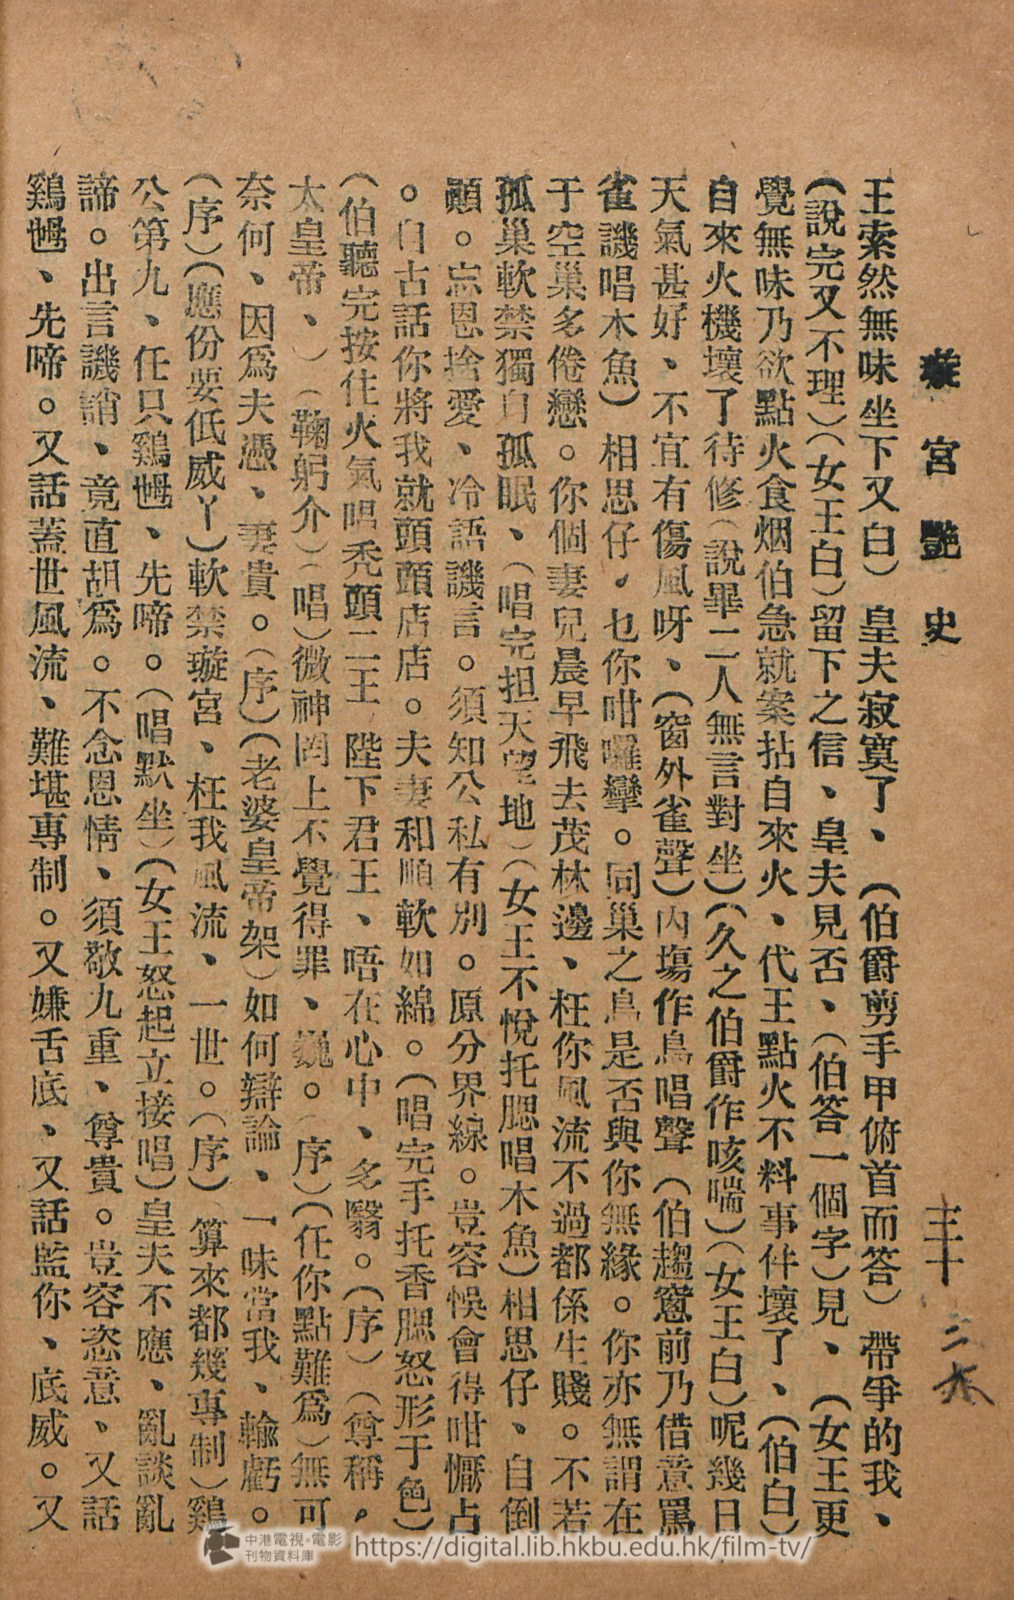 璇宮艷史
三十
二九
王索然無味坐下又白）皇夫寂寞了、（伯爵剪手甲俯首而答）帶爭的我、
（說完又不理）（女王白）留下之信、皇夫見否、（伯答一個字）見、（女王更
覺無味乃欲點火食烟伯急就案拈自來火、代王點火不料事件壞了、（伯白）
自來火機壞了待修（說畢二人無言對坐）（久之伯爵作咳喘）（女王白）呢幾日
天氣甚好、不宜有傷風呀、（窗外雀聲）內塲作鳥唱聲（伯趨窻前乃借意罵
雀譏唱木魚）相思仔。乜你咁囉攣。同巢之鳥是否與你無緣。你亦無謂在
于空巢多倦戀。你個妻兒晨早飛去茂林邊、枉你風流不過都係生賤。不若
孤巢軟禁獨自孤眠、（唱完担天望地）（女王不悅托腮唱木魚）相思仔、自倒
顛。忘恩捨愛、冷語譏言。須知公私有別。原分界線。豈容悞會得咁慪占
。自古話你將我就頭頭店店。夫妻和順軟如綿。（唱完手托香腮怒形于色）
（伯聽完按住火氣唱禿頭二王）陛下君王、唔在心中、多翳。（序）（尊稱。
太皇帝、）（鞠躬介）（唱）微神罔上不覺得罪、巍。（序）（任你點難為）無可
奈何、因爲夫憑、妻貴。（序）（老婆皇帝架）如何辯論、一味當我、輸虧。
（序）（應份要低威丫）軟禁璇宮、枉我風流、一世。（序）算來都幾專制）鷄
公第九、任只鷄乸、先啼。（唱默坐）（女王怒起立接唱）皇夫不應、亂談亂
諦。出言譏誚、竟直胡爲。不念恩情、須敬九重、尊貴。豈容恣意、又話
鷄乸、先啼。又話蓋世風流、難堪專制。又嫌舌底、又話監你、底威。又
中港電視·電影
刊物資料庫
https://digital.lib.hkbu.edu.hk/film-tv/